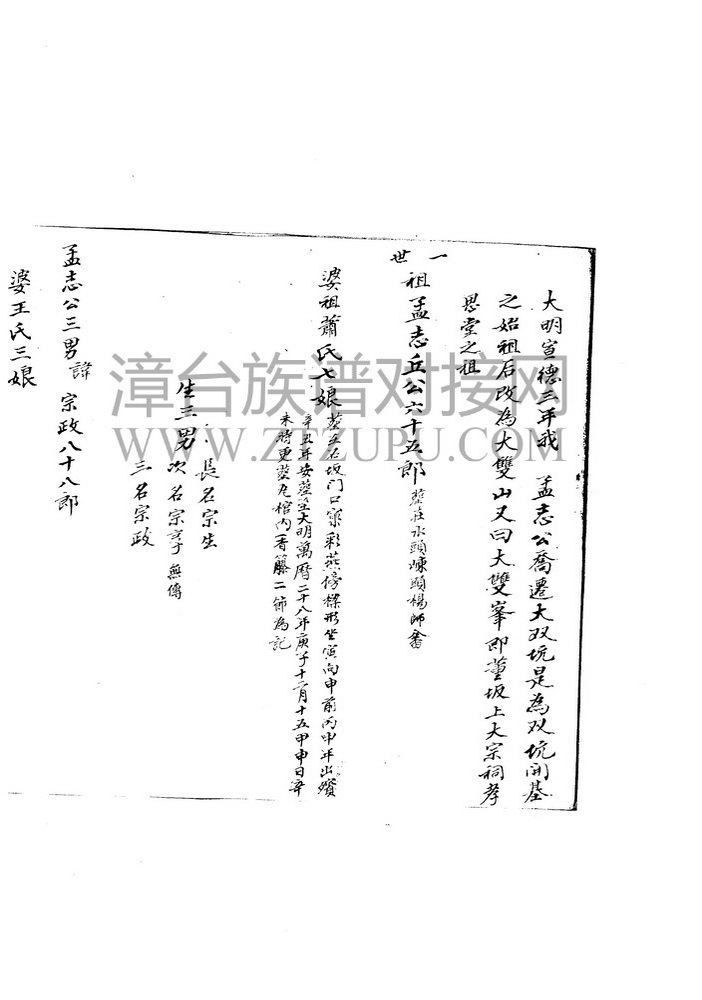 大明宣德三年我 孟志公喬遷大双坑是為双坑開基
之始祖后改為大雙山又曰大雙峯即董坂上大宗祠孝
思堂之祖
一世
祖孟志丘公六十五郎 葬在水頭崠頭楊師畲
婆祖蕭氏七娘 葬在石坂門口窠彩燕傍樑形坐寅向申前丙申年出殯
辛丑年安葬至大明萬曆二十八年庚子十二月十五甲申日辛
未時更葬瓦棺內一香籐二節為記
生三男
長名宗生
次名宗亨 無傳
三名宗政
孟志公三男諱 宗政八十八郎
婆王氏三娘
漳台族谱对接网
WWW.ZTZUPU.COM